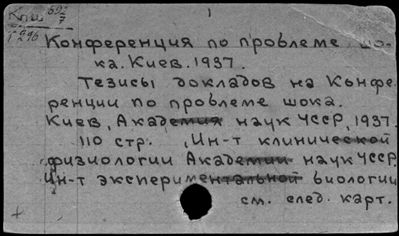 1
Конференция по проблеме шо-
ка. Киев. 1937.
Тезисы докладов на Конфе-
ренции по проблеме шока.
Киев, Академия наук УССР, 1937.
110 стр. , Ин-т клинической
физиологии Академии наук УССР.
Ин-т экспериментальной биологии
см. след. карт.